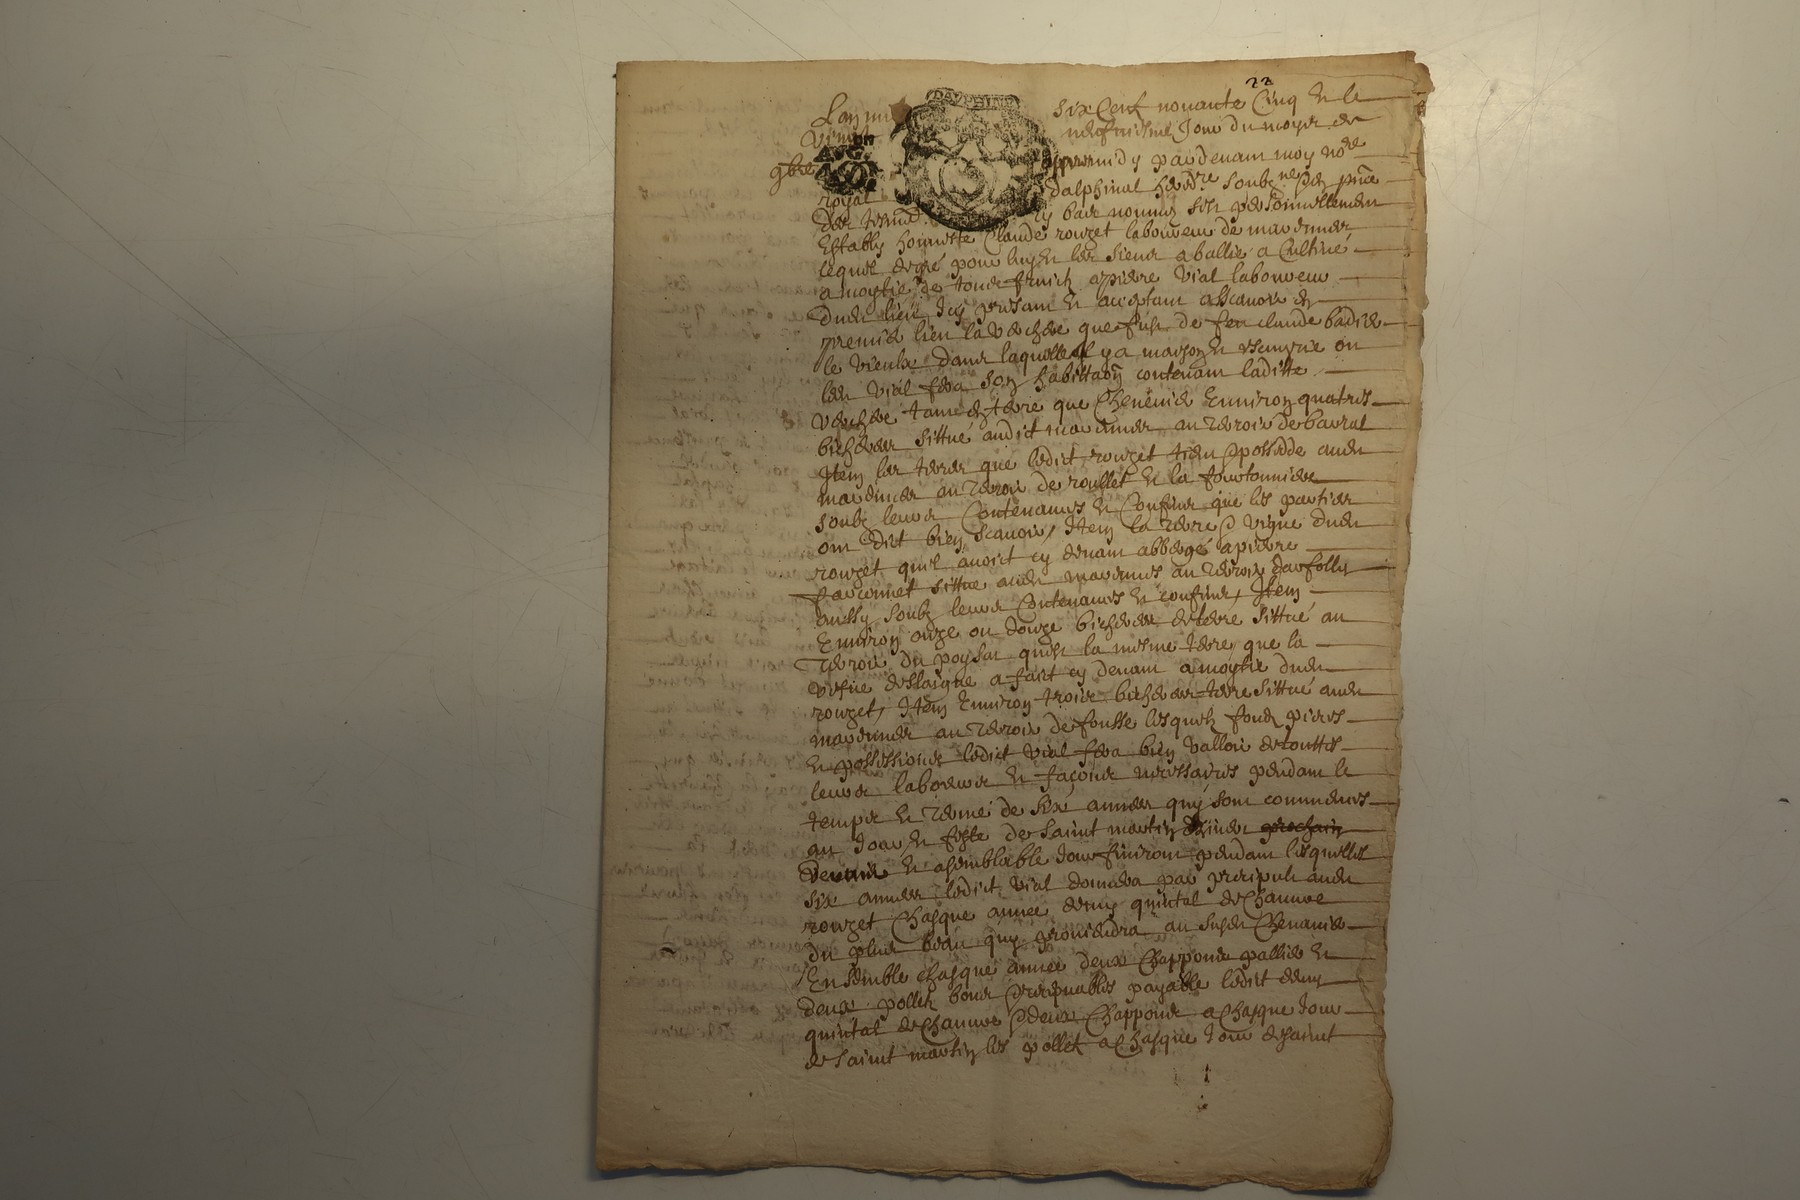 22
DAUPHINE
Lan mil six Cent nonante Cinq et le
vingt neufuiesme Jour du moys de
9bre appres midy par deuant moy no.re
royal dalphinal hered.re soubz.ne et en pnce
des tesmoings cy bas nommes sest personnellement
Estably honneste Claude rouget laboureur de marennes
lequel de gré pour luy et les siens a ballie a Cultiue
a moytie de tous fruich a pierre Vial laboureur
dud lieu Icy presant et acceptant asscauoir en
premie lieu la verchere que fust de feu claude badier
le vieulx dans laquelle il y a maison et escuyrie ou
led vial fera son habittaon contenant laditte
verchere tant en terre que Cheneuier Enuiron quatres
bicherees sittué audict marennes au terroir de barrat
Item les terres que ledict rouget tient et possedde aud
marennes au terroir de roullet et la fourtonniere
soubz leurs Contenances et Confins que les parties
ont dict bien scauoir, Item la terre et vigne dud
rouget quil auoict cy deuant abbergé a pierre
faconnet sittue aud marennes au terroir
aussy soubz leurs Contenances et confins, Item
Enuiron onze ou douze bicherees de terre sittué au
terroir du poysat quest la mesme terre que la
vefue a fait cy deuant a moytie dud
rouget, Item Enuiron trois bicherees terre sittué aud
marennes au terroir de fousse lesquelz fondz pieces
et possessions ledict vial fera bien valloir de touttes
leurs labeurs et façons necessaires pendant le
temps et terme de six annees quy sont commences
au Jour et feste de saint martin dernier prochain
et a semblable Jour finiront pendant lesquelles
six annees ledict vial donnera par precipult aud
rouget Chasque annee demy quintal de Chanure
du plus beau quy prouiendra au susd Chenauier
Ensemble chasque annee deux Chappons pallier et
deux pollet bons et receptuables payable ledict demy
quintal de Chanure et deux Chappons a Chasque Jour
de saint martin les pollet a Chasque Jour de saint